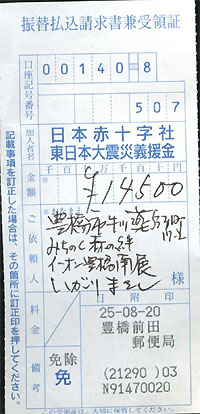 振替払込請求書兼受領証
口座記号番号
00140-8
507
加入者名
日本赤十字社
東日本大震災義援金
金額
千百十万千百十円
¥14500
ご依頼人
おなまえ
豊橋市牛川
みちのく森の絆
イーオン豊橋南展
いがりまさし
様
料金
日附印
25-08-20
豊橋前田
郵便局
備考
免除
免
(21290)03
N91470020
記載事項を訂正した場合は、その箇所に訂正印を押してください。
この受領証は、大切に保管してください。